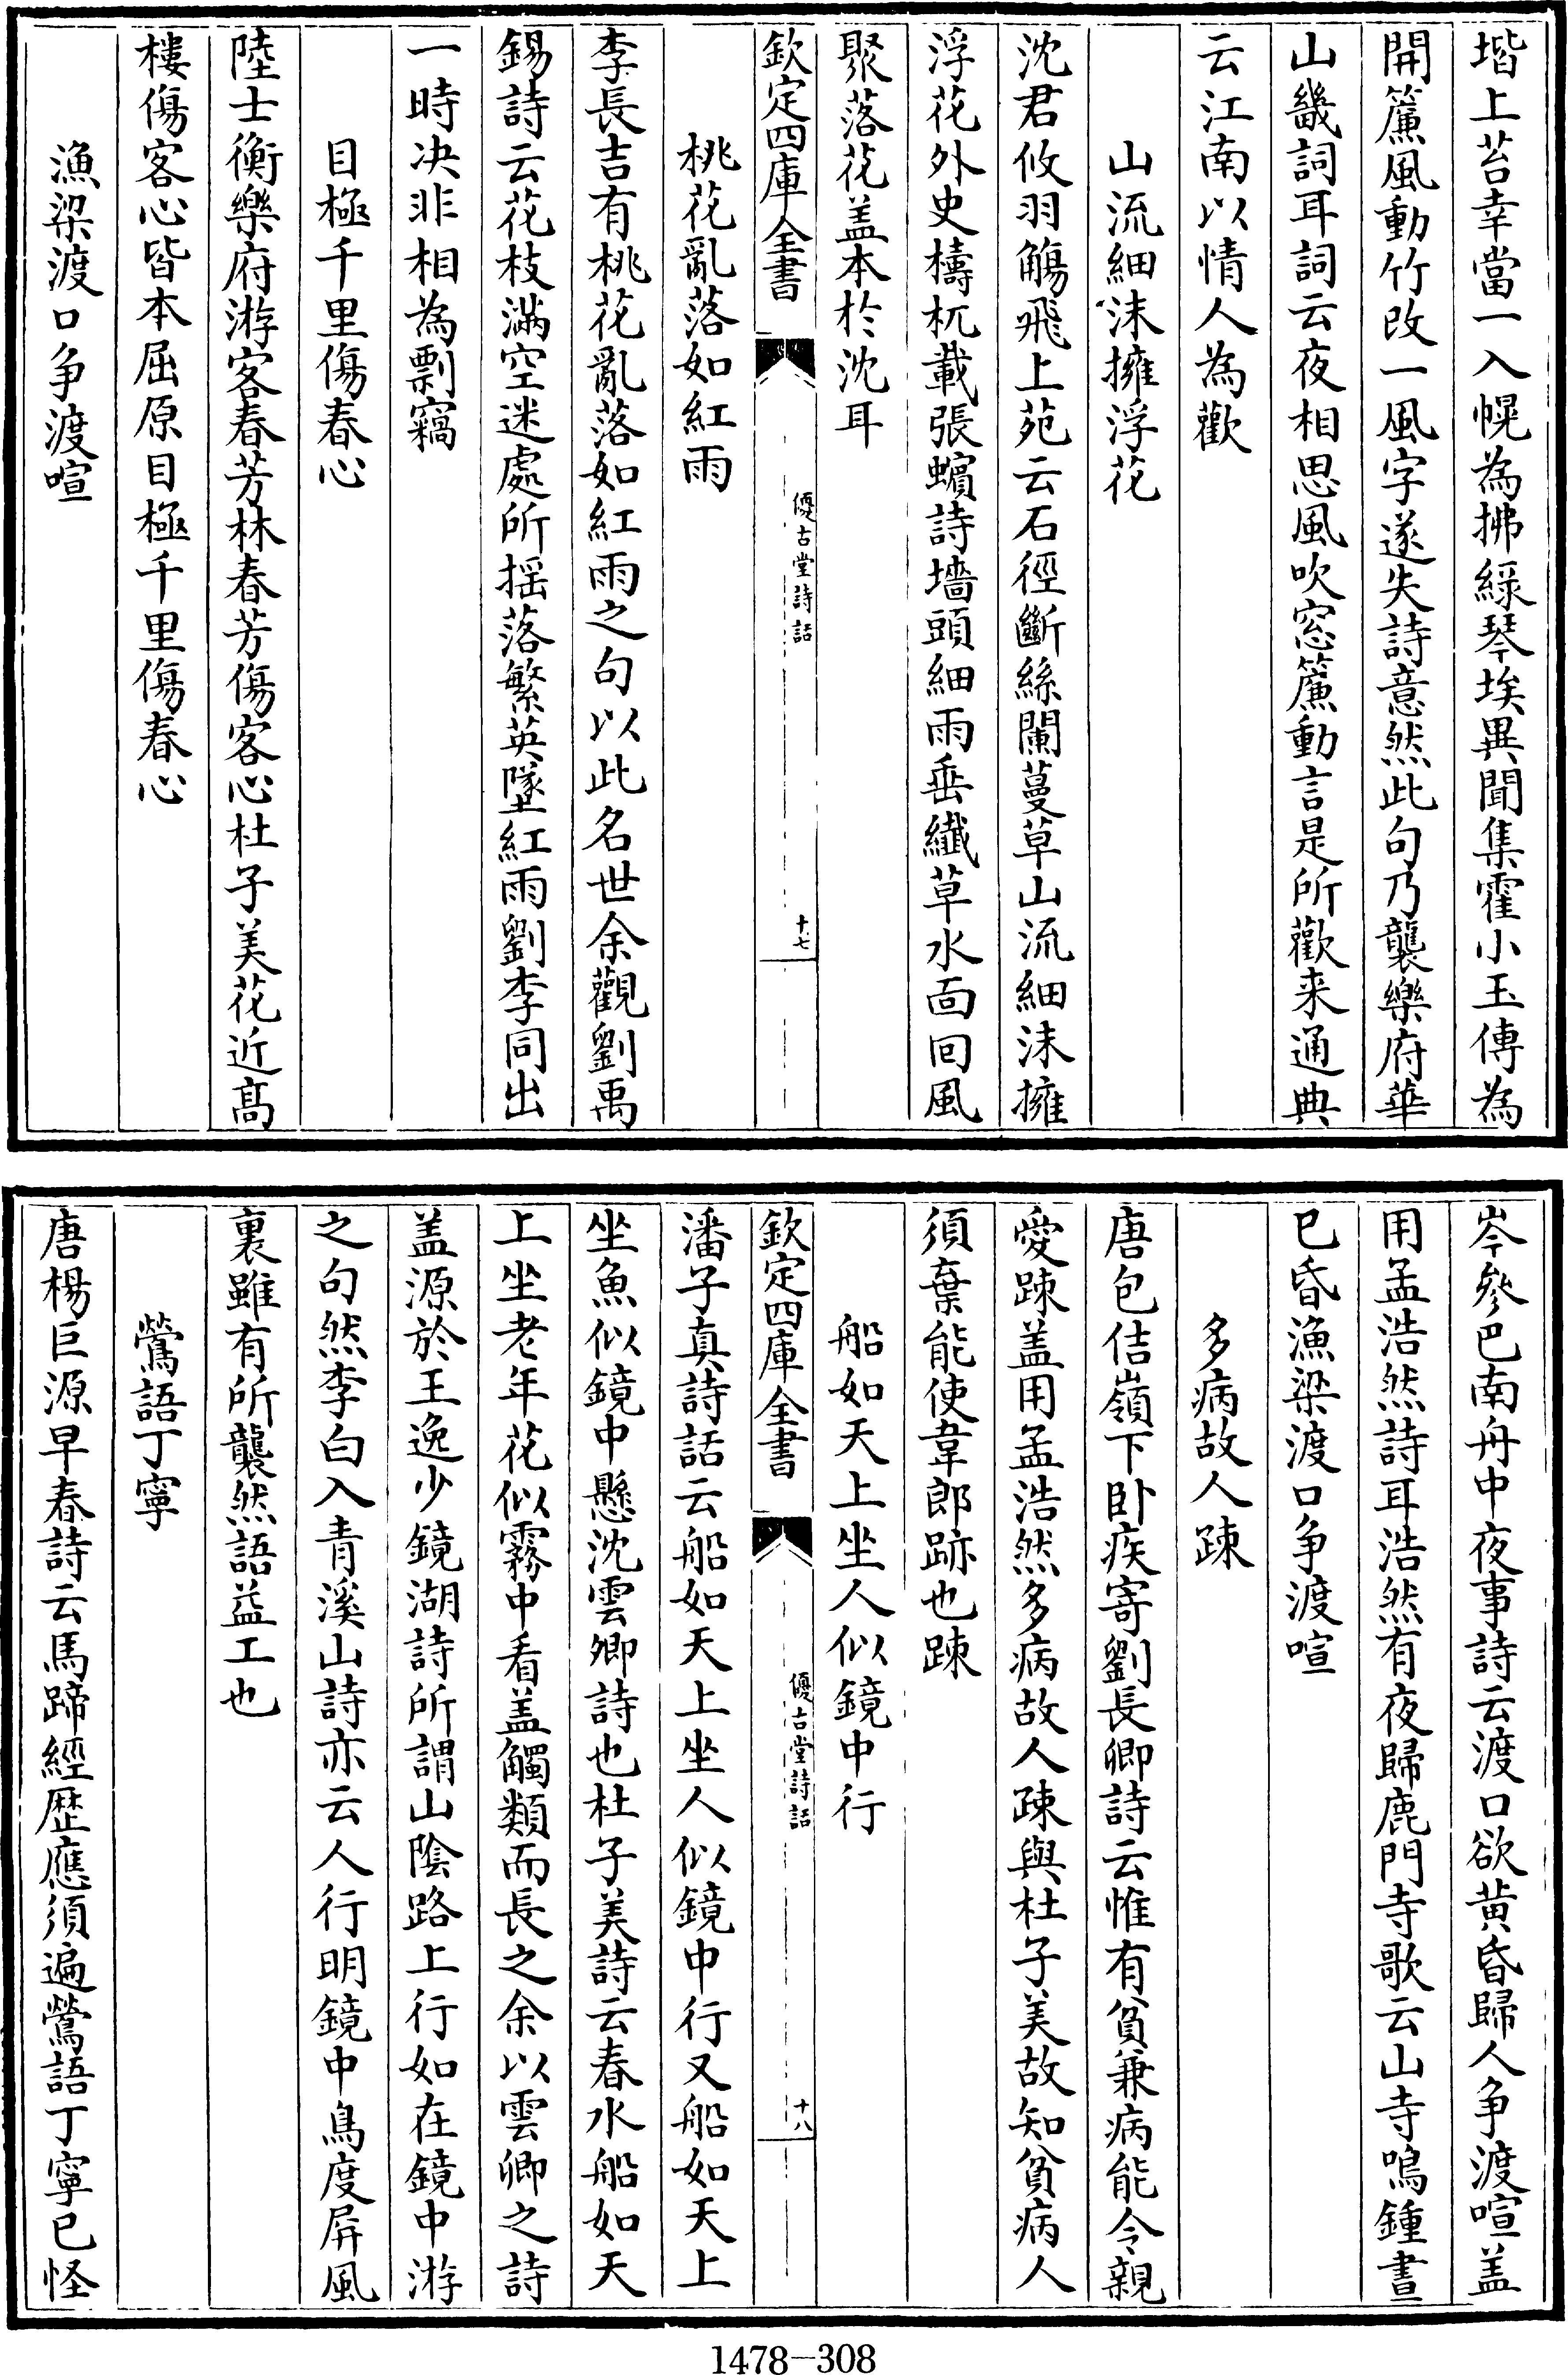 堦上苔幸當一入幌為拂綠琴埃異聞集霍小玉傳為
開簾風動竹改一風字遂失詩意然此句乃襲樂府華
山畿詞耳詞云夜相思風吹窓簾動言是所歡来通典
云江南以情人為歡
山流細沫擁浮花
沈君攸羽觴飛上苑云石徑斷絲闌蔓草山流細沫擁
浮花外史檮杌載張蠙詩墻頭細雨垂纖草水面回風
聚落花盖本於沈耳
欽定四庫全書
優古堂詩話
十七
桃花亂落如紅雨
李長吉有桃花亂落如紅雨之句以此名世余觀劉禹
錫詩云花枝滿空迷處所揺落繁英墜紅雨劉李同出
一時决非相為剽竊
目極千里傷春心
陸士衡樂府游客春芳林春芳傷客心杜子美花近髙
樓傷客心皆本屈原目極千里傷春心
漁梁渡口争渡喧
岑參巴南舟中夜事詩云渡口欲黄昏歸人争渡喧盖
用孟浩然詩耳浩然有夜歸鹿門寺歌云山寺鳴鍾晝
已昏漁梁渡口争渡喧
多病故人踈
唐包佶嶺下卧疾寄劉長卿詩云惟有貧兼病能令親
愛踈盖用孟浩然多病故人踈與杜子美故知貧病人
須棄能使韋郎跡也踈
船如天上坐人似鏡中行
欽定四庫全書
優古堂詩話
十八
潘子真詩話云船如天上坐人似鏡中行又船如天上
坐魚似鏡中懸沈雲卿詩也杜子美詩云春水船如天
上坐老年花似霧中看盖觸類而長之余以雲卿之詩
盖源於王逸少鏡湖詩所謂山隂路上行如在鏡中游
之句然李白入青溪山詩亦云人行明鏡中鳥度屏風
裏雖有所襲然語益工也
鶯語丁寧
唐楊巨源早春詩云馬蹄經歴應須遍鶯語丁寧已怪
1478—308